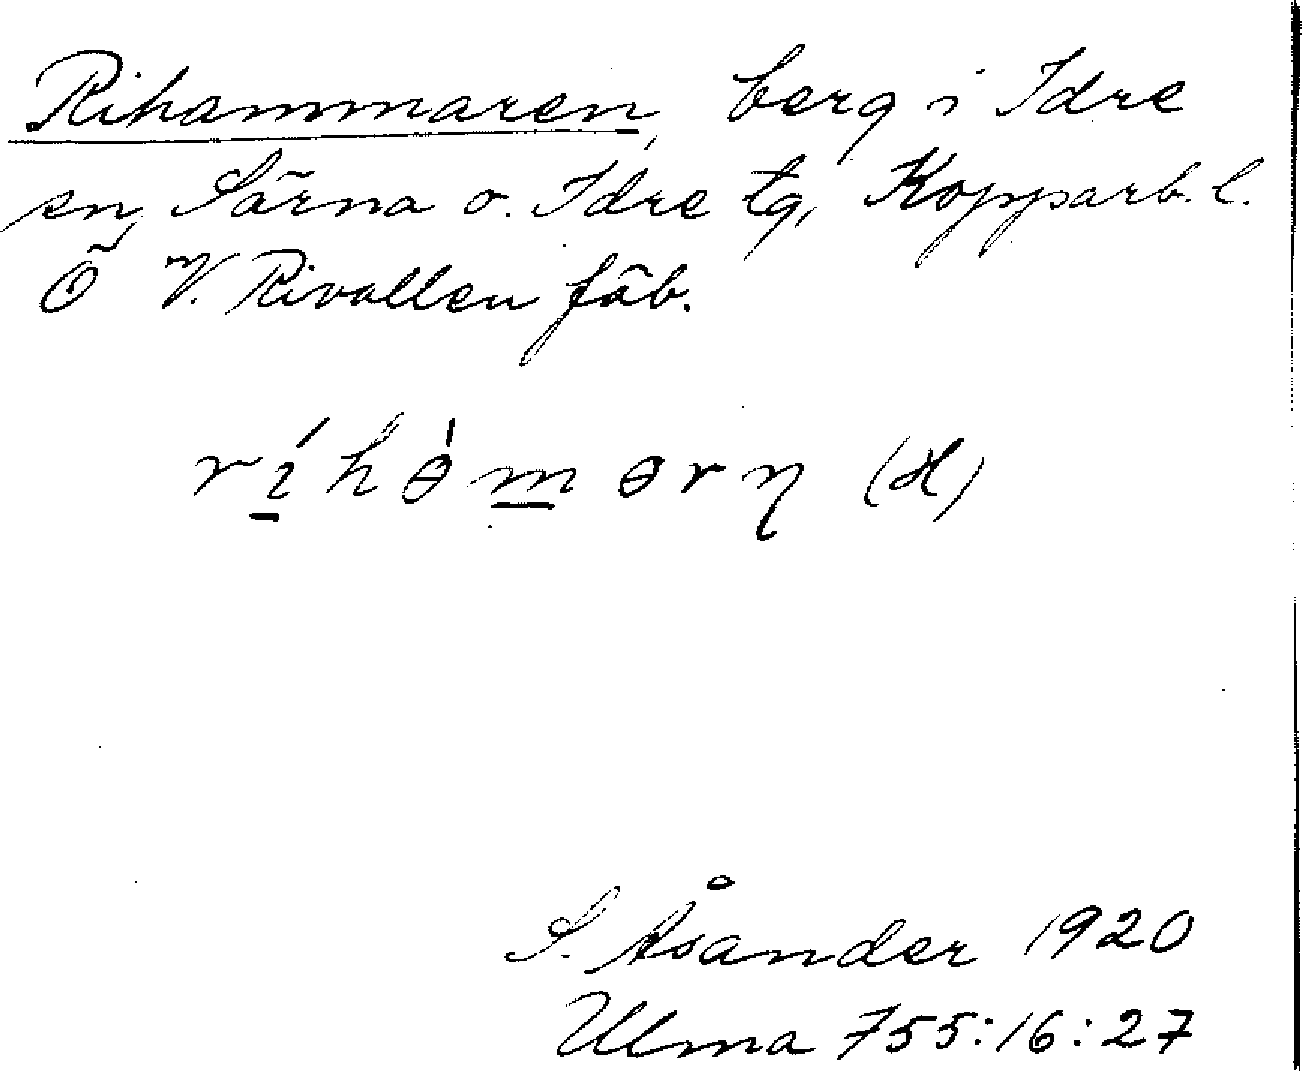 Rihammaren, berg i Idre
sn, Särna o. Idre tg, Kopparb. l.
Ö V. Rivallen fäb.
ríhə̀mərn (H)
S. Åsander 1920
Ulma 755:16:27